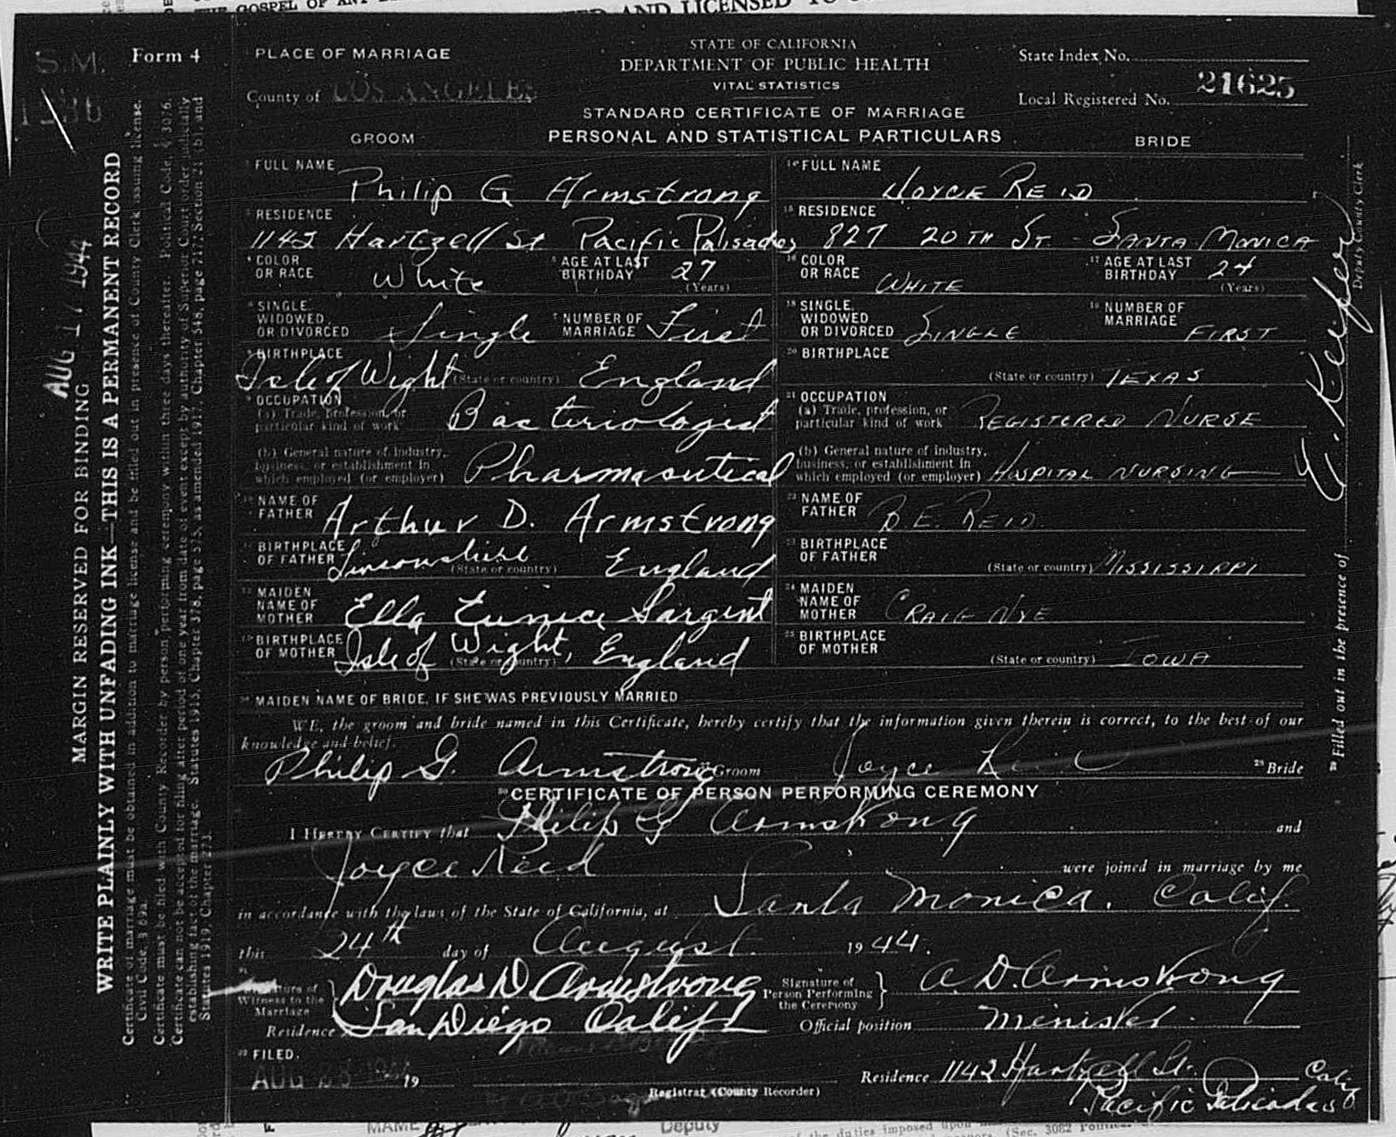 GOSPEL OF
AND LICENSED TO
S.M.
Form 4
PLACE OF MARRIAGE
County of LOS ANGELES
STATE OF CALIFORNIA
DEPARTMENT OF PUBLIC HEALTH
VITAL STATISTICS
STANDARD CERTIFICATE OF MARRIAGE
PERSONAL AND STATISTICAL PARTICULARS
State Index No.
Local Registered No. 21625
GROOM
BRIDE
FULL NAME Philip G Armstrong
FULL NAME JOYCE REID
RESIDENCE
1142 Hartzell St Pacific Palisades
RESIDENCE
827 20TH ST - SANTA MONICA
COLOR OR RACE White AGE AT LAST BIRTHDAY 27 (Years)
COLOR OR RACE WHITE AGE AT LAST BIRTHDAY 24 (Years)
SINGLE, WIDOWED OR DIVORCED Single NUMBER OF MARRIAGE First
SINGLE, WIDOWED OR DIVORCED SINGLE NUMBER OF MARRIAGE FIRST
BIRTHPLACE
Isle of Wight (State or country) England
BIRTHPLACE
(State or country) TEXAS
OCCUPATION
(a) Trade, profession, or particular kind of work Bacteriologist
OCCUPATION
(a) Trade, profession, or particular kind of work REGISTERED NURSE
(b) General nature of industry, business, or establishment in which employed (or employer) Pharmasutical
(b) General nature of industry, business, or establishment in which employed (or employer) HOSPITAL NURSING
NAME OF FATHER Arthur D. Armstrong
NAME OF FATHER B.E. REID
BIRTHPLACE OF FATHER (State or country) England
BIRTHPLACE OF FATHER (State or country) MISSISSIPPI
MAIDEN NAME OF MOTHER Ella Eunice Sargent
MAIDEN NAME OF MOTHER CRAIG NYE
BIRTHPLACE OF MOTHER Isle of Wight, (State or country) England
BIRTHPLACE OF MOTHER (State or country) IOWA
MAIDEN NAME OF BRIDE, IF SHE WAS PREVIOUSLY MARRIED
WE, the groom and bride named in this Certificate, hereby certify that the information given therein is correct, to the best of our
knowledge and belief.
Philip G. Armstrong Groom Joyce Reid Bride
CERTIFICATE OF PERSON PERFORMING CEREMONY
I HEREBY CERTIFY that Philip G Armstrong and
Joyce Reid were joined in marriage by me
in accordance with the laws of the State of California, at Santa Monica, Calif.
this 24th day of August 1944.
Signature of Witness to the Marriage Douglas D Armstrong
Signature of Person Performing the Ceremony A. D. Armstrong
Residence San Diego Calif
Official position Minister
FILED.
AUG 28 1944 19
Registrar (County Recorder)
Residence 1142 Hartzell St.
Pacific Palisades Calif
AUG 17 1944
MARGIN RESERVED FOR BINDING
WRITE PLAINLY WITH UNFADING INK—THIS IS A PERMANENT RECORD
Certificate of marriage must be obtained in addition to marriage license and be filled out in presence of County Clerk issuing license.
Civil Code,
Certificate must be filed with County Recorder by person performing ceremony within three days thereafter. Political Code, § 3076.
Certificate can not be accepted for filing after period of one year from date of event except by authority of Superior Court order judicially
establishing fact of the marriage. Statutes 1915, Chapter 378, page 575, as amended 1917, Chapter 548, page 717, Section 21 (b), and
Statutes 1919, Chapter 273.
Filled out in the presence of E. Keefer
Deputy County Clerk
NAME
Deputy
of the duties imposed upon